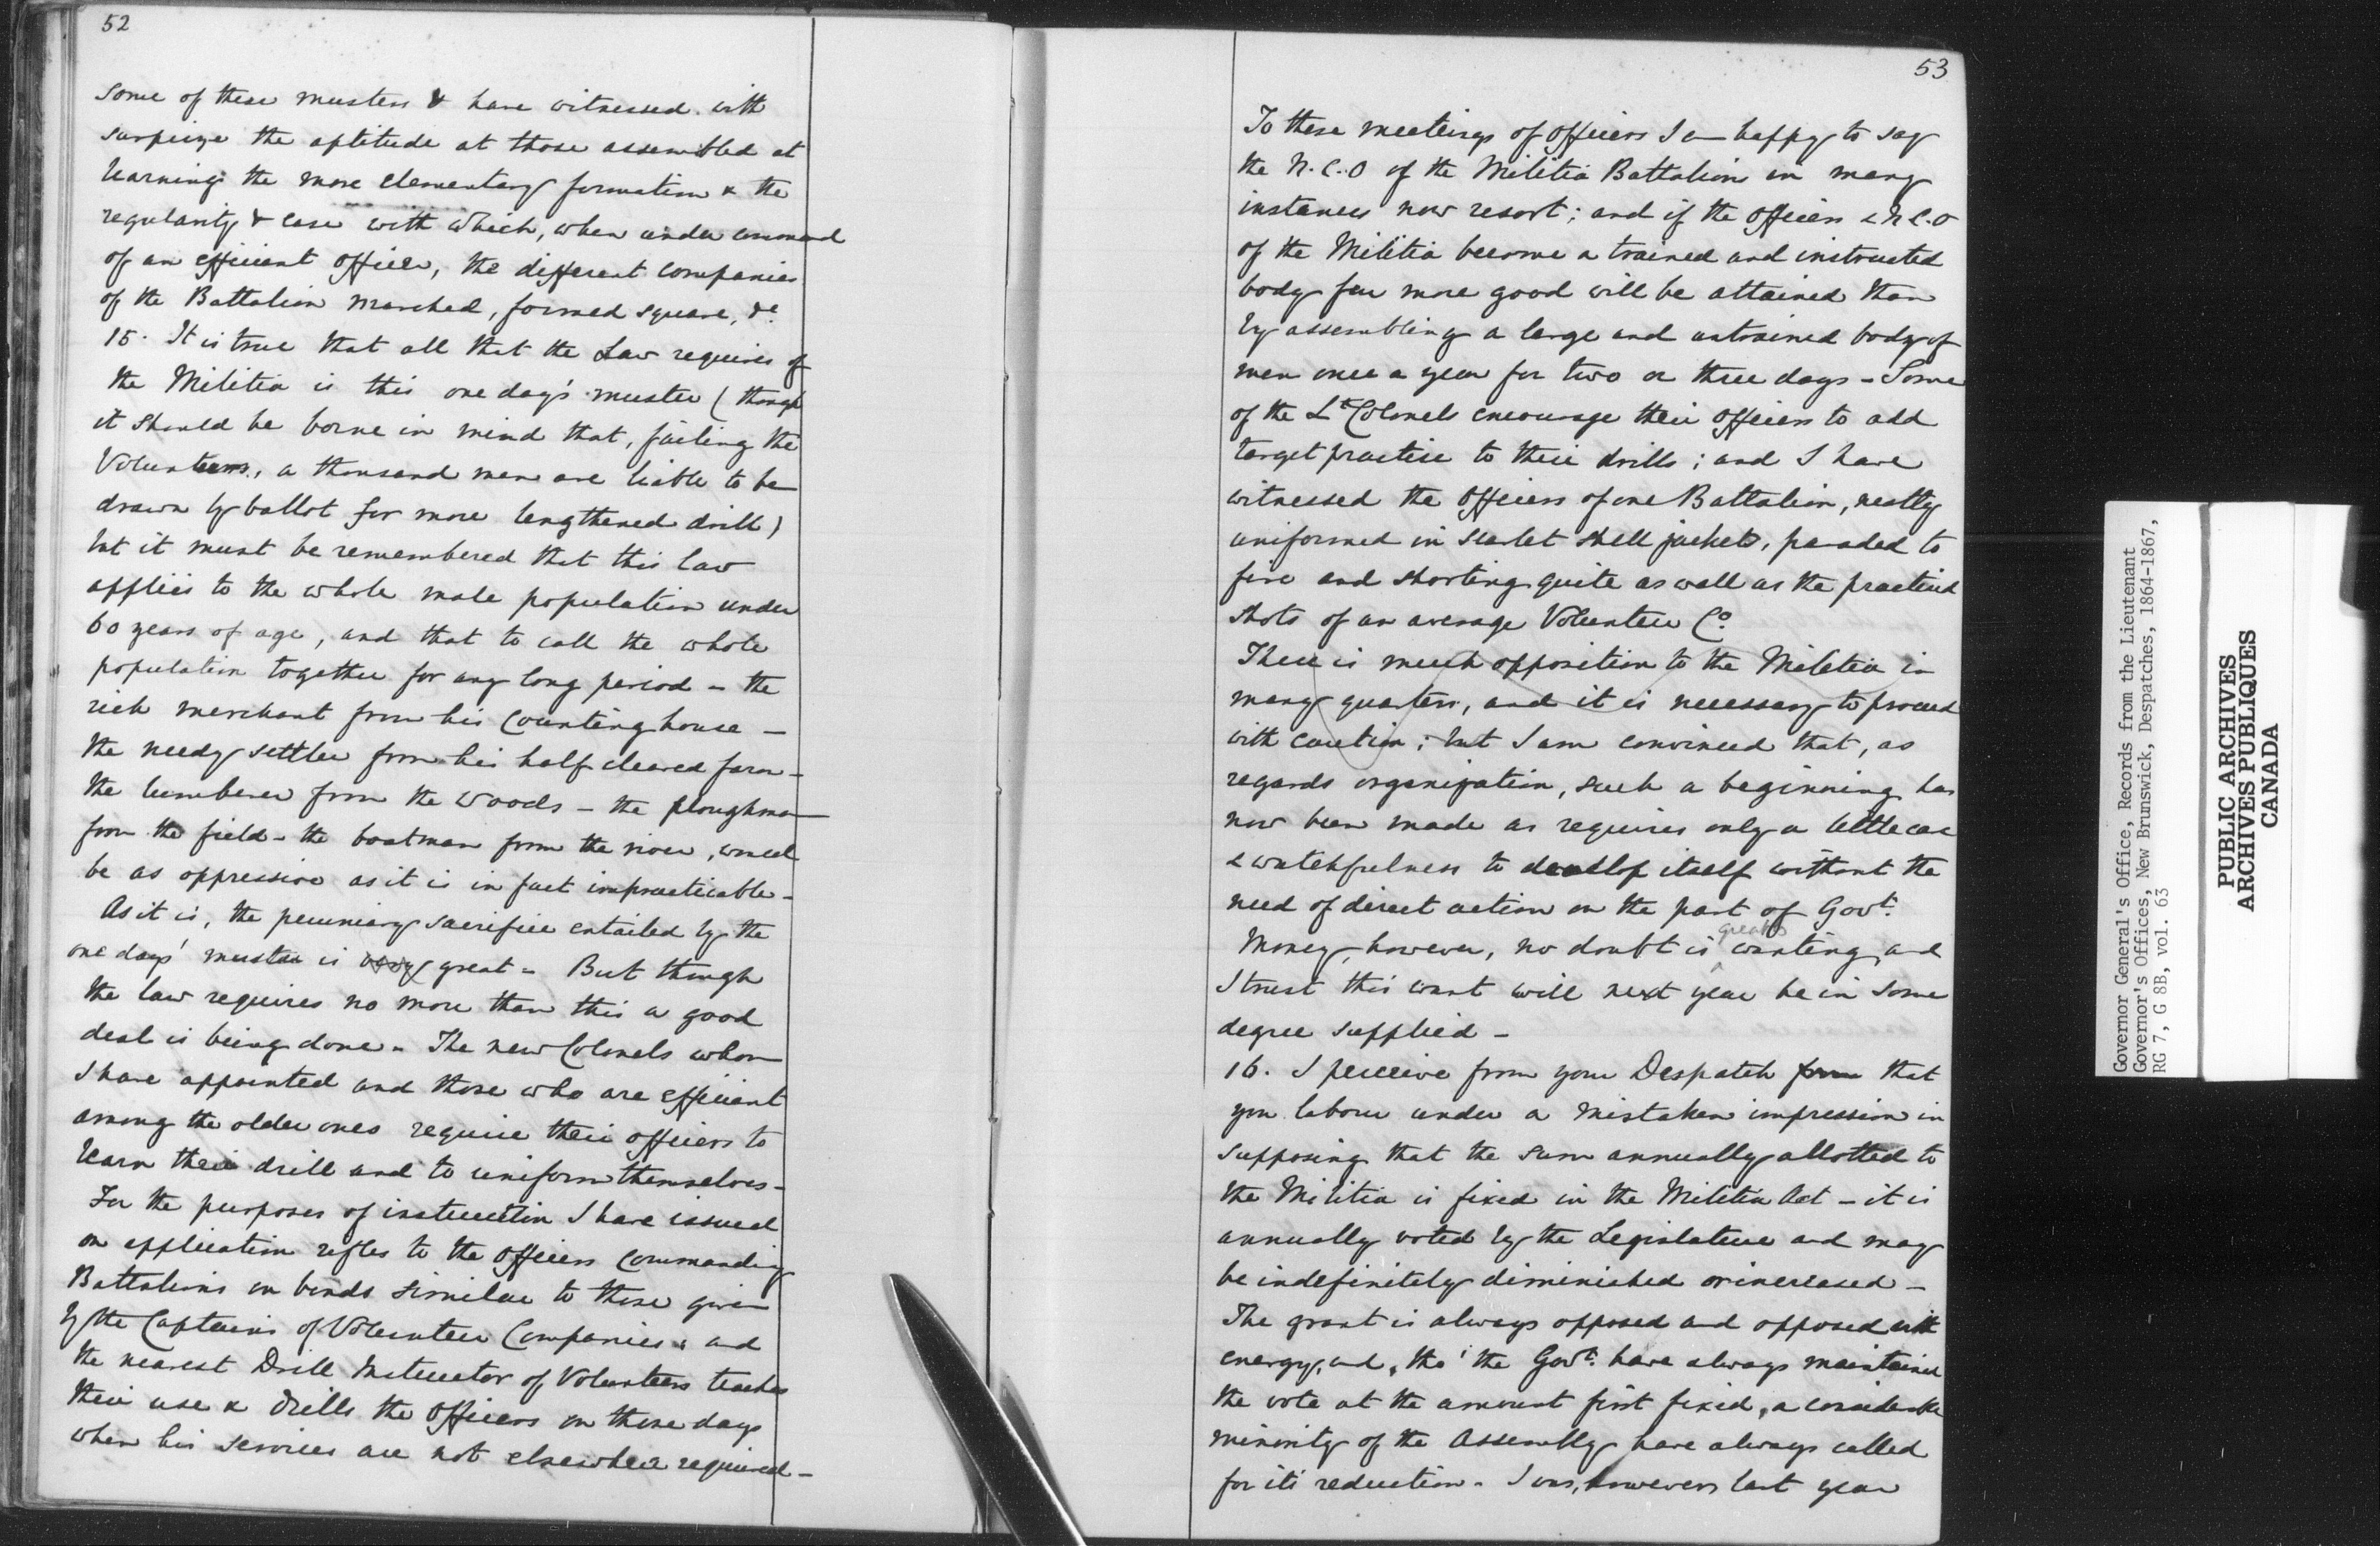 52
some of these musters & have witnessed with
surprize the aptitude at those assembled at
learning the more elementary formation & the
regularity & ease with which, when under command
of an efficient officer, the different companies
of the Battalion marched, formed square, &c.
15. It is true that all that the Law requires of
the Militia is this one day's muster (though
it should be borne in mind that, failing the
Volunteers, a thousand men are liable to be
drawn by ballot for more lengthened drill)
but it must be remembered that this law
applies to the whole male population under
60 years of age, and that to call the whole
population together for any long period - the
rich merchant from his Counting house -
the needy settler from his half cleared farm -
the lumberer from the woods - the ploughman
from the field - the boatman from the river, would
be as oppressive as it is in fact impracticable -
As it is, the pecuniary sacrifice entailed by the
one days' muster is very great - But though
the law requires no more than this a good
deal is being done - The new Colonels whom
I have appointed and those who are efficient
among the older ones require their officers to
learn their drill and to uniform themselves -
For the purposes of instruction I have issued
on application rifles to the Officers Commanding
Battalions on bonds similar to those given
by the Captains of Volunteer Companies, and
the nearest Drill Instructor of Volunteers teaches
their use & drills the Officers on those days
when his services are not elsewhere required -
53
To these meetings of Officers I am happy to say
the N.C.O of the Militia Battalions in many
instances now resort; and if the Officers & N.C.O
of the Militia become a trained and instructed
body far more good will be attained than
by assembling a large and untrained body of
men once a year for two or three days - Some
of the Lt Colonels encourage their Officers to add
target practise to their drills; and I have
witnessed the Officers of one Battalion, neatly
uniformed in scarlet shell jackets, paraded to
fire and shooting quite as well as the practised
shots of an average Volunteer Co.
There is much opposition to the Militia in
many quarters, and it is necessary to proceed
with caution; but I am convinced that, as
regards organization, such a beginning has
now been made as requires only a little care
& watchfulness to develop itself without the
need of direct action on the part of Govt.
Money, however, no doubt is greatly wanting, and
I trust this want will next year be in some
degree supplied -
16. I perceive from your Despatch from that
you labour under a mistaken impression in
supposing that the sum annually allotted to
the Militia is fixed in the Militia Act - it is
annually voted by the Legislature and may
be indefinitely diminished or increased -
The grant is always opposed and opposed with
energy, and, tho' the Govt. have always maintained
the vote at the amount first fixed, a considerable
minority of the Assembly have always called
for its reduction - I was, however, last year
Governor General's Office, Records from the Lieutenant
Governor's Offices, New Brunswick, Despatches, 1864-1867,
RG 7, G 8B, vol. 63
PUBLIC ARCHIVES
ARCHIVES PUBLIQUES
CANADA